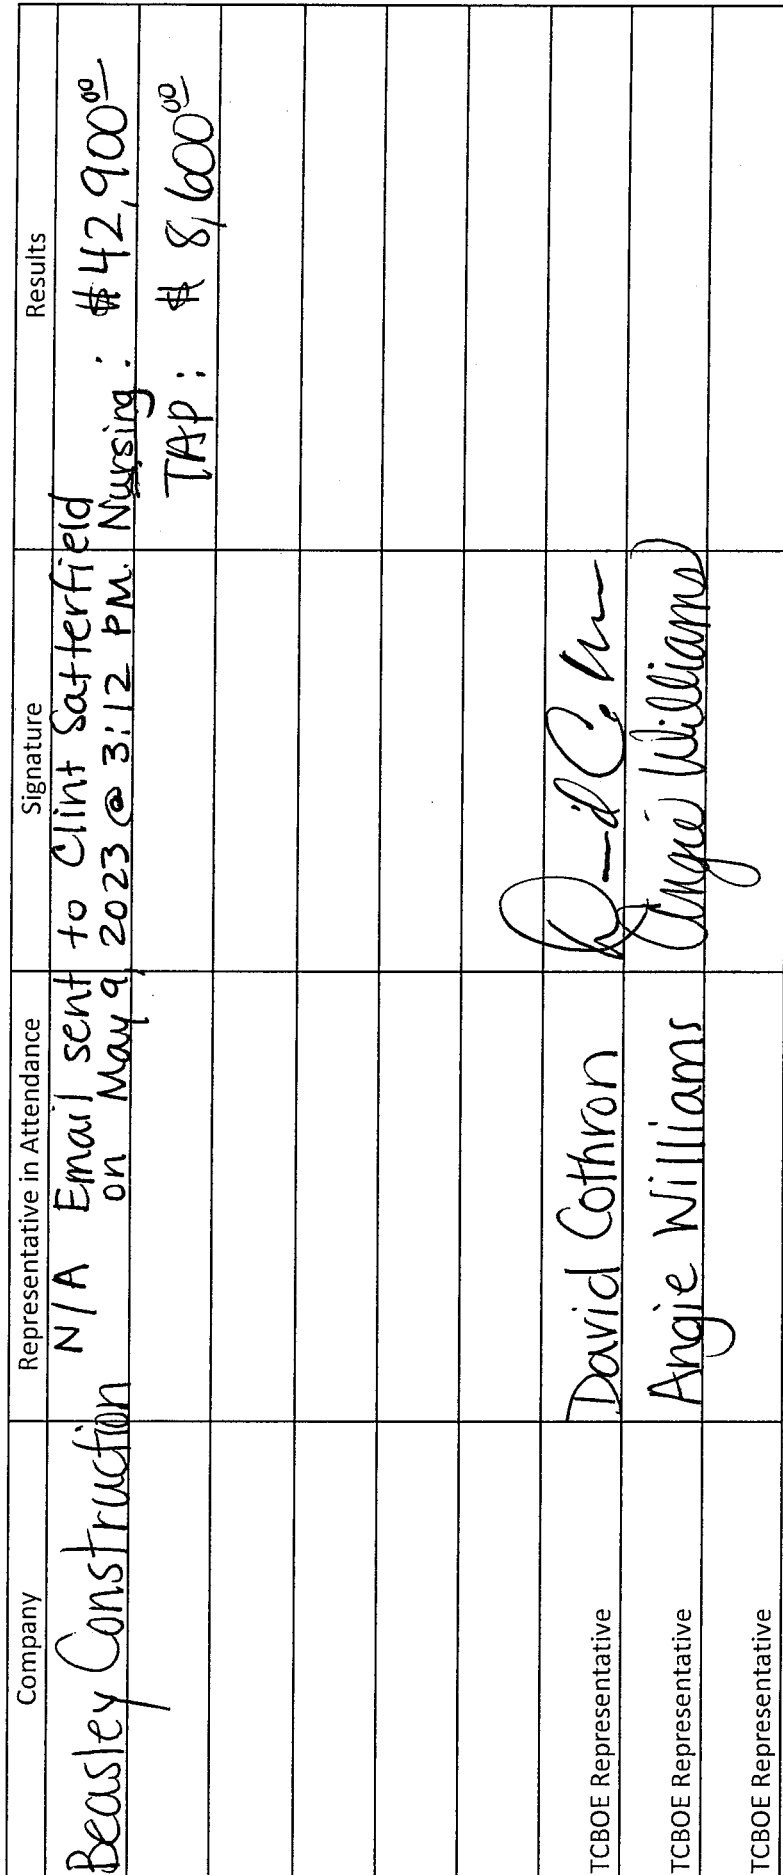 Company Representative in Attendance Signature Results
Beasley Construction N/A Email sent to Clint Satterfield
on May 9, 2023 @ 3:12 PM. Nursing: $42,900⁰⁰
TAP: $8,600⁰⁰
TCBOE Representative David Cothron
TCBOE Representative Angie Williams Angie Williams
TCBOE Representative